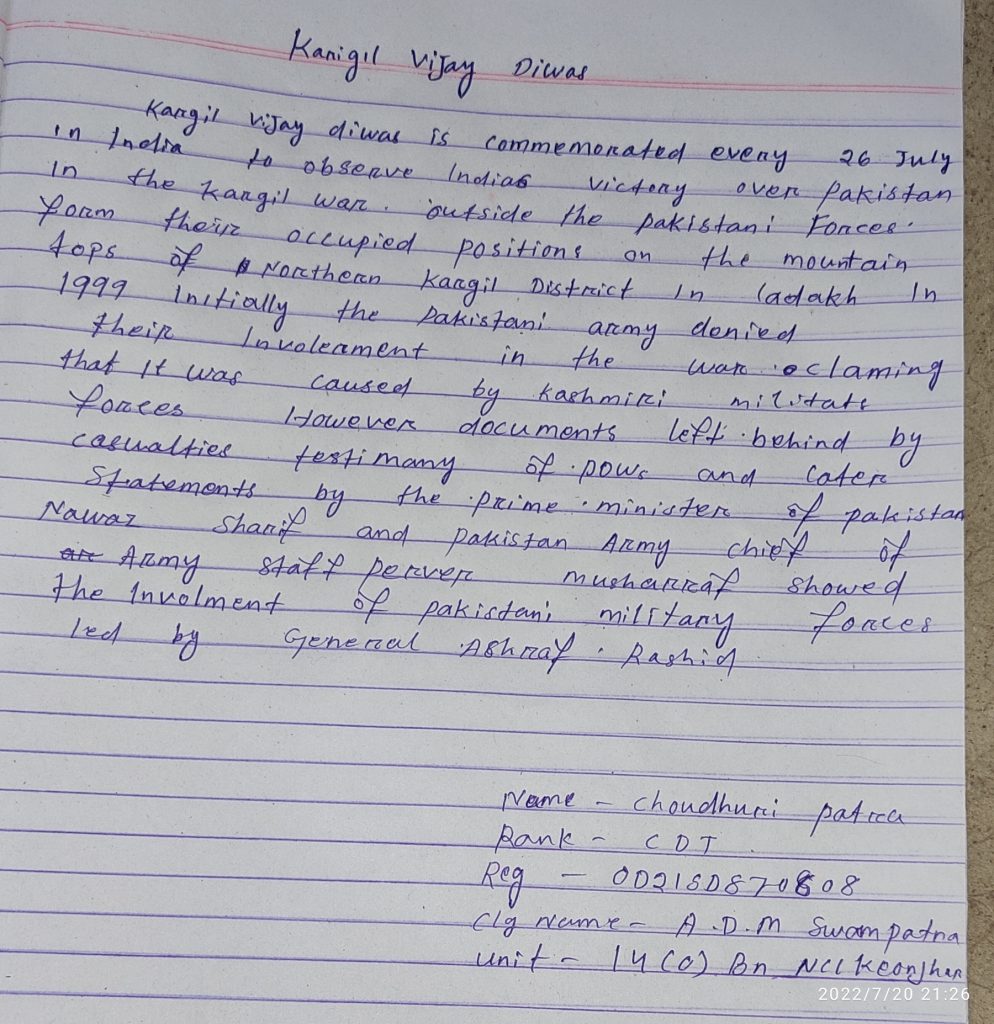 Kanigil Vijay Diwas
Kargil Vijay diwas is commemorated every 26 July
in India to observe Indias victory over Pakistan
In the kargil war. outside the pakistani Forces.
form their occupied positions on the mountain
tops of Northern Kargil District In ladakh In
1999 Initially the Pakistani army denied
their Involeament in the war claming
that It was caused by kashmiri militate
forces However documents left behind by
casualties testimany of pows and Later
Statements by the prime minister of pakistan
Nawaz Sharif and pakistan Army chief of
Army staff perver musharraf showed
the Involment of pakistani military forces
led by General Ashraf Rashid
Name - Choudhuri patra
Rank - CDT
Reg - OD21SD870808
Clg Name - A.D.M Swampatna
Unit - 14 (O) Bn NCC Keonjhar
2022/7/20 21:26